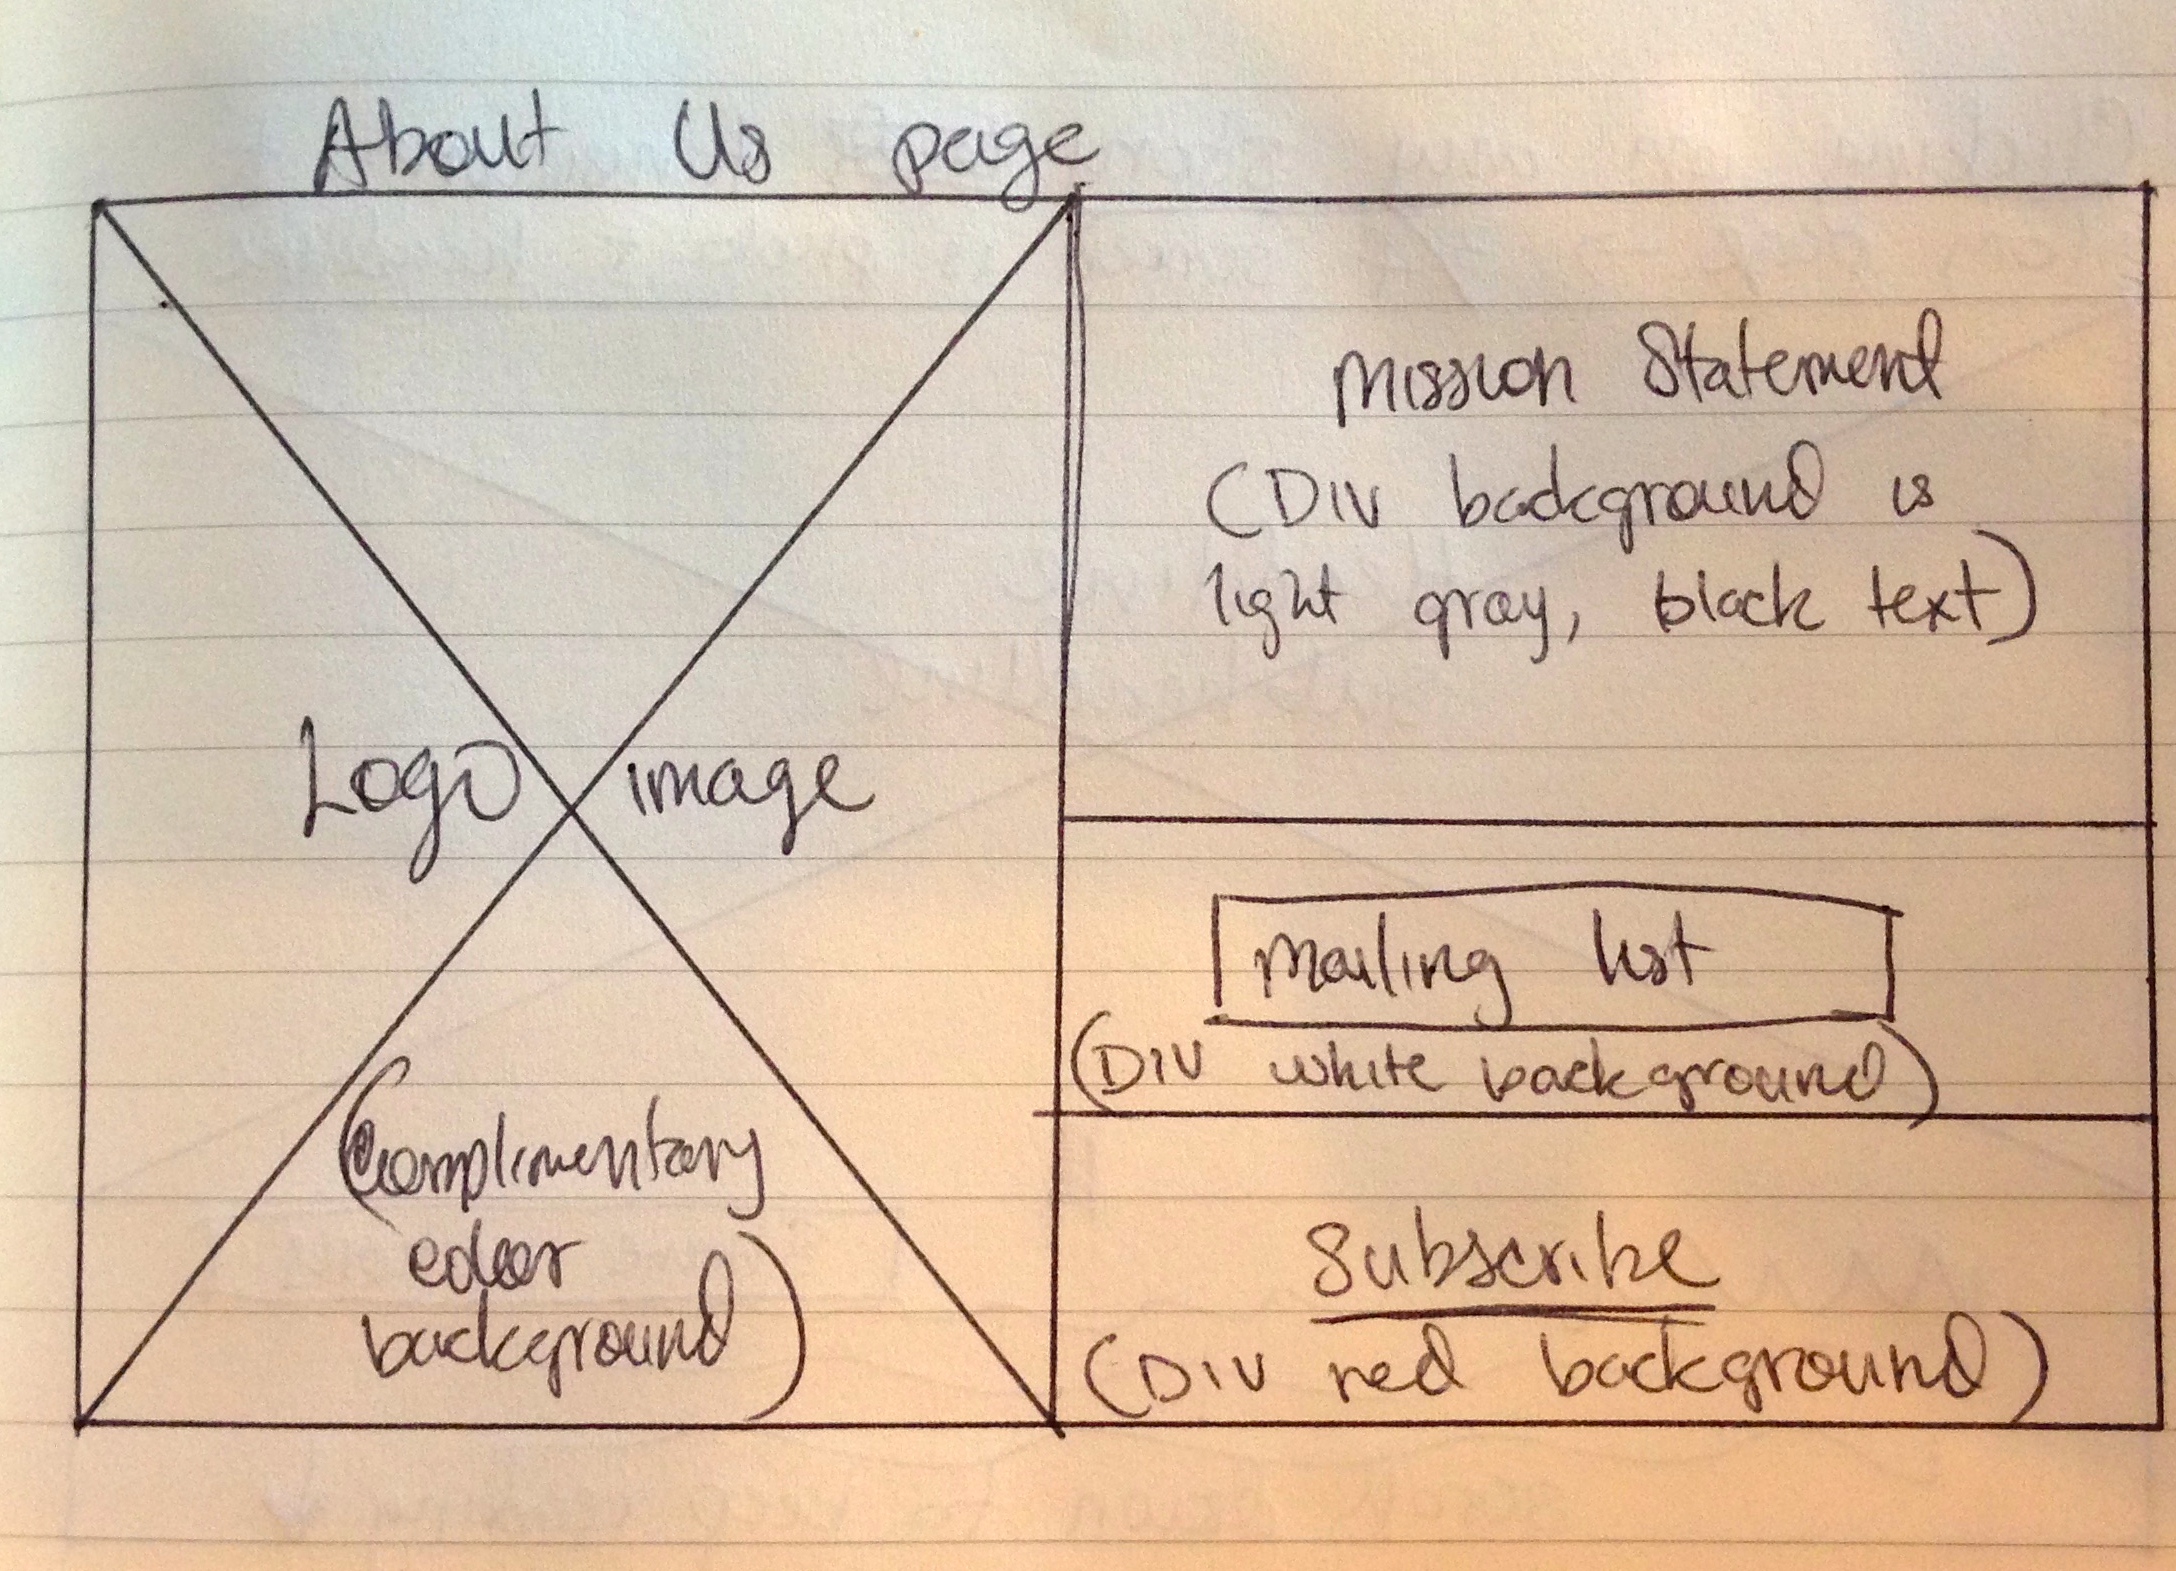 About Us page
Logo image
(Complimentary
color
background)
Mission Statement
(DIV background is
light gray, black text)
Mailing list
(DIV white background)
Subscribe
(DIV red background)